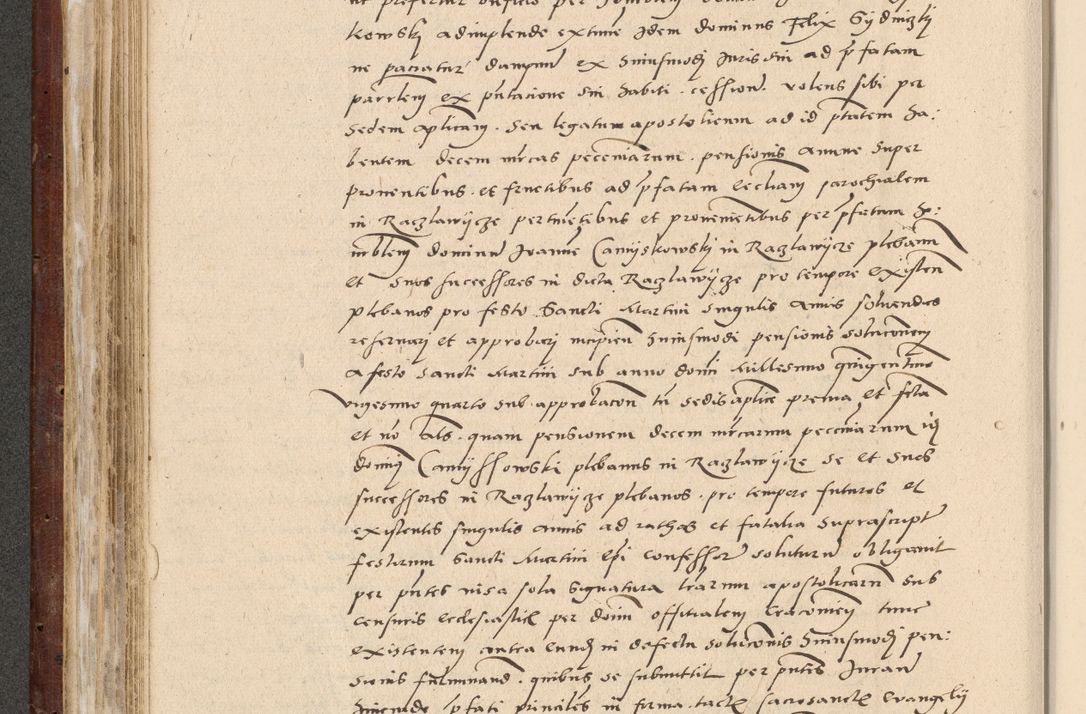 kowskj adimplende extunc Idem dominus Felix Gydziczkj
ne paciatur dampnum ex huiusmodj Juris sui ad pfatam
parrlem ex putacione sui habiti cession volens sibi per
sedem aplicam seu legatum apostolicum ad id ptatem ha:
bentem decem mrcas peccuniarum pensionis annue super
prouentibus et fructibus ad pfatam eccliam parochialem
in Raczlawycze pertinetibus et prouenietibus per pfatum ho:
norblem dominum Joanne Camyskowskj in Raczlawycze plebanu
et suos successores in dicta Raczlawycze pro tempore existen
plebanos pro festo Sancti Martini singulis annis soluendas
reseruarj et approbarj incipien huiusmodi pensionis solucionem
a festo Sancti Martini sub anno domi Millesimo quingentesimo
vigesimo quarto sub approbacon tn sedis aplice premissa et fcta
et no als quam pensionem decem mrcarum peccuniarum idem
domin Camyssowski plebanus in Raczlawycze se et suos
successores in Raczlawycze plebanos pro tempore futuros et
existentes singulis annis ad rathas et fatalia suprascript
festorum Sancti Martini epi confessor soluturum obligauit
per pntes visa sola signatura lrarum apostolicarum sub
censuris ecclesiastic per domi offitialem Cracouien tunc
existentem contra eundem in defectu solucionis huiusmodj pen:
sionis fulminand quibus se submittit per pntes Juran
hincinde pfati principales in forma tactis sacrosanctis Evangelij